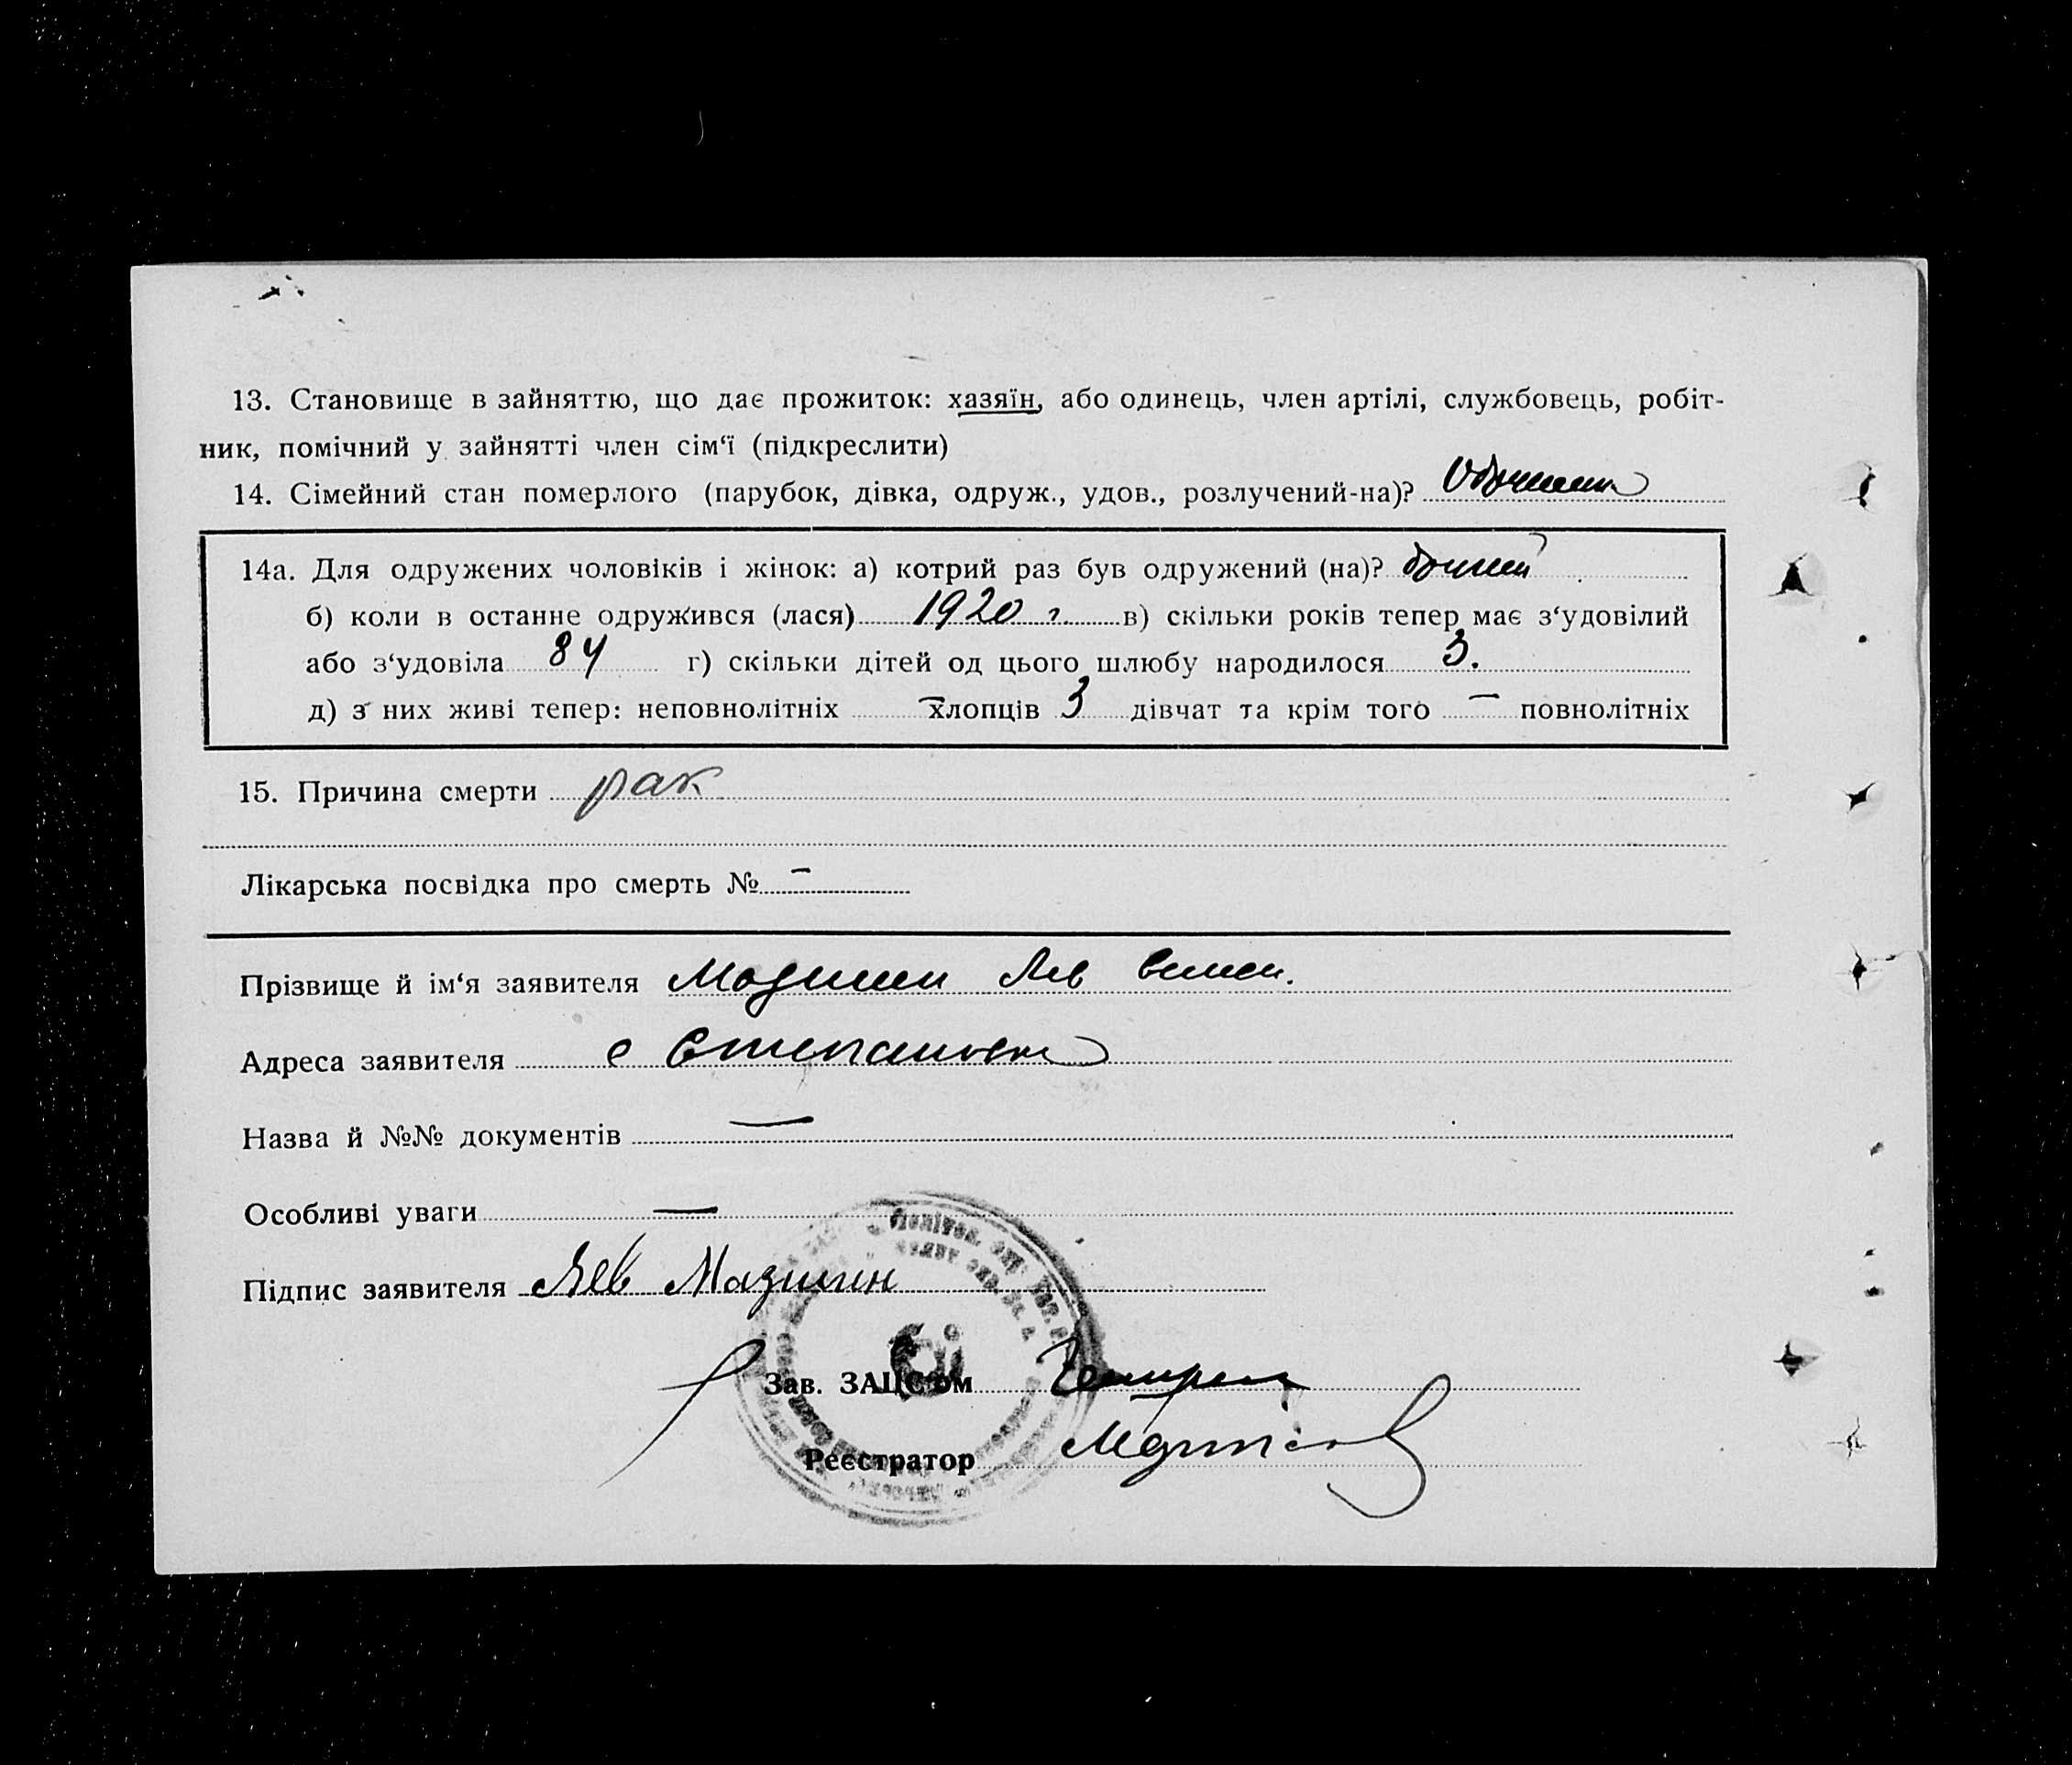 13. Становище в зайняттю, що дає прожиток: хазяїн, або одинець, член артілі, службовець, робіт-
ник, помічний у зайнятті член сім‘ї (підкреслити)
14. Сімейний стан померлого (парубок, дівка, одруж., удов., розлучений-на)?
14а. Для одружених чоловіків і жінок: а) котрий раз був одружений (на)?
б) коли в останне одружився (лася) 1920 г. в) скільки років тепер має з‘удовілий
або з‘удовіла 84 г) скільки дітей од цього шлюбу народилося 3.
д) з них живі тепер: неповнолітніх — хлопців 3 дівчат та крім того — повнолітніх
15. Причина смерти рак
Лікарська посвідка про смерть № —
Прізвище й ім‘я заявителя Лев
Адреса заявителя с Степановка
Назва й №№ документів —
Особливі уваги —
Підпис заявителя Лев Мазинин
Зав. ЗАЦС‘ом
Реєстратор